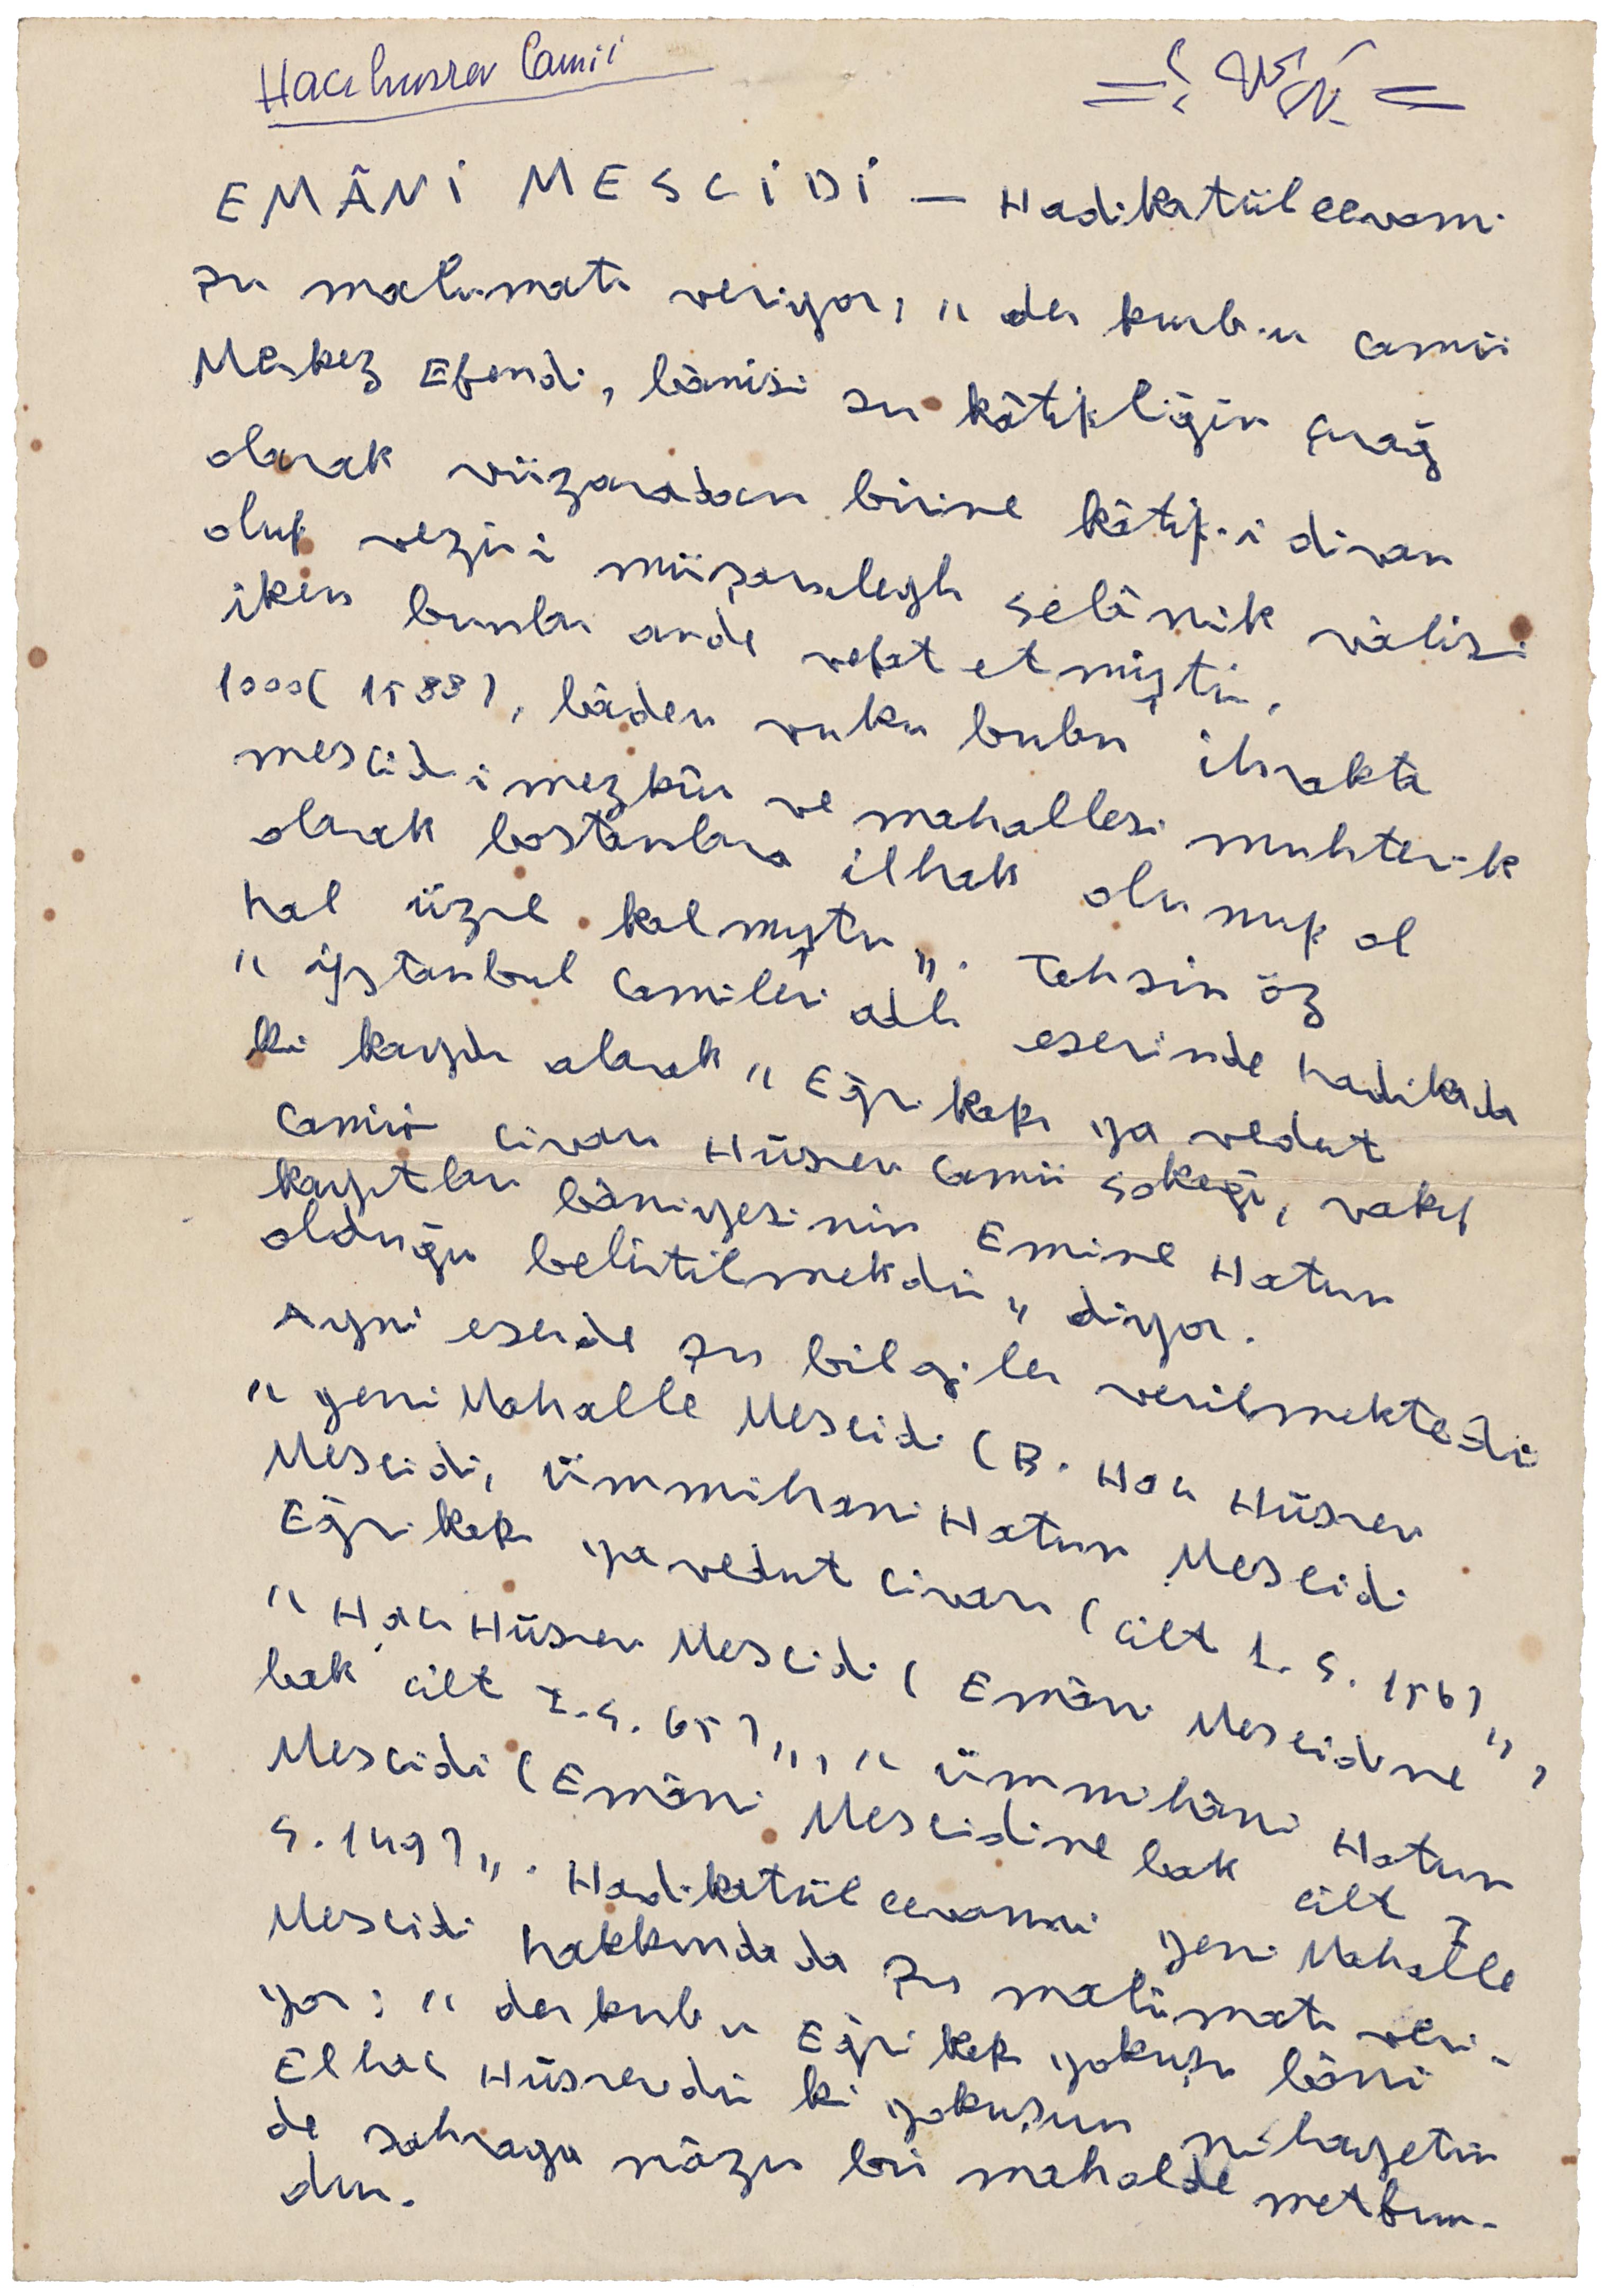 Hacıhusrev Camii
EMÂNİ MESCİDİ — Hadikatülcevami
şu malumatı veriyor, " der kurb-u camii
Merkez Efendi, bânisi su kâtipliğin çırağ
olarak vüzaradan birine kâtip-i divan
olup vezir-i müşarıleyh Selânik valisi
iken bunlar anda vefat etmiştir.
1000( 1588), bâden vuku bulan ihrakta
mescid-i mezkûr ve mahallesi muhterik
olarak bostanlara ilhak olunup ol
hal üzre kalmıştır ". Tahsin Öz
" İstanbul Camileri adlı eserinde hadikada
ki kaydı alarak " Eğri kapı yavedut
Camii civarı Hüsrev Camii sokağı, vakıf
kayıtları bâniyesinin Emine Hatun
olduğu belirtilmekdir " diyor.
Aynı eserde şu bilgiler verilmektedir
" yeni Mahalle Mescidi (B. Hacı Hüsrev
Mescidi, ümmihani Hatun Mescidi
Eğrikapı yavedut civarı (cilt I. S. 156) "
" Hacı Hüsrev Mescidi ( Emâni Mescidine ",
bak cilt I. S. 65) ", " ümmihâni Hatun
Mescidi ( Emâni Mescidine bak cilt I
S. 149) ". Hadikatülcevami yeni Mahalle
Mescidi hakkında da şu malûmatı veri-
yor: " der kurb-u Eğrikapı yokuşu bâni
Elhac Hüsrevdir ki yokuşun nihayetin
de sahraya nâzır bir mahalde metfun-
dur.